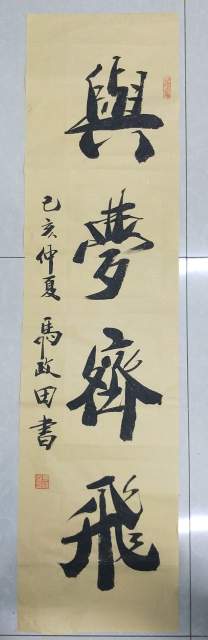 與夢齊飛
己亥仲夏 馬政田書